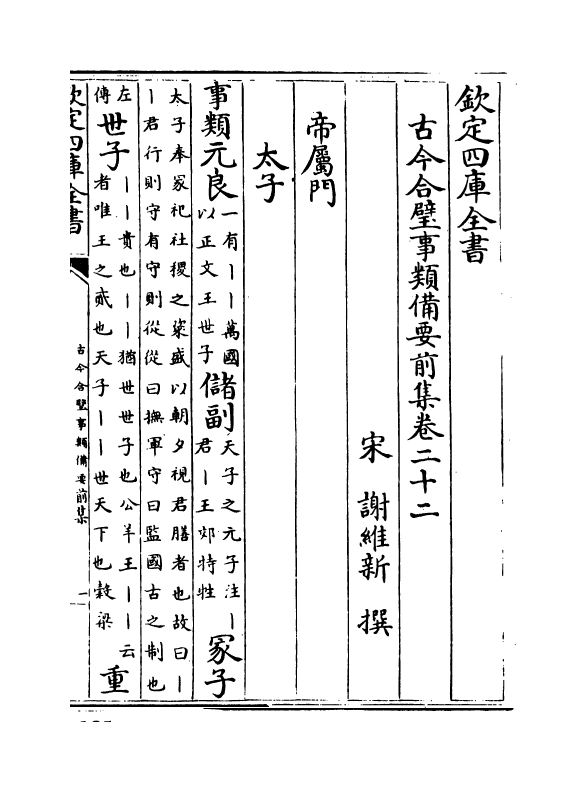 欽定四庫全書
古今合璧事類備要前集卷二十二
宋 謝維新 撰
帝屬門
太子
事類元良一有丨丨萬國以正文王世子儲副天子之元子注丨君丨王郊特牲冢子
太子奉冢祀社稷之粢盛以朝夕視君膳者也故曰丨
丨君行則守有守則從從曰撫軍守曰監國古之制也
左傳世子丨丨貴也丨丨猶世世子也公羊王丨丨云者唯王之貳也天子丨丨世天下也穀梁重
欽定四庫全書
古今合璧事類備要前集
一